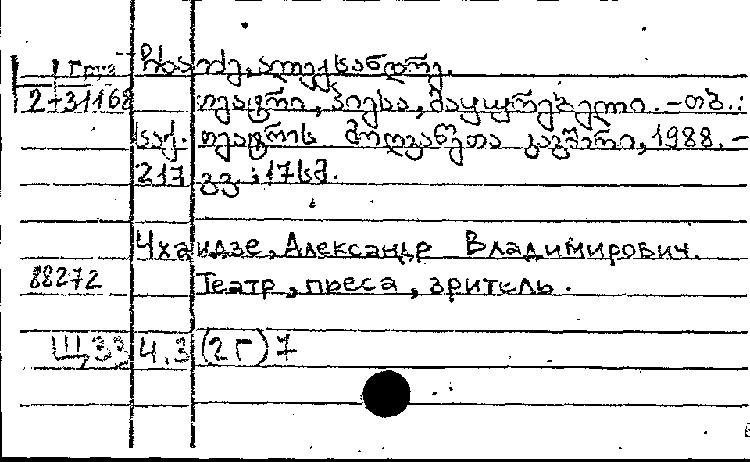 Груз ჩხაიძე, ალექსანდრე.
2-31168 თეატრი, პიესა, მაყურებელი. – თბ.:
საქ. თეატრის მოღვაწეთა კავშირი, 1988. –
217 გვ.; 17 სმ.
Чхаидзе, Александр Владимирович.
88272 Театр, пьеса, зритель.
Щ33 4.3(2Г)7